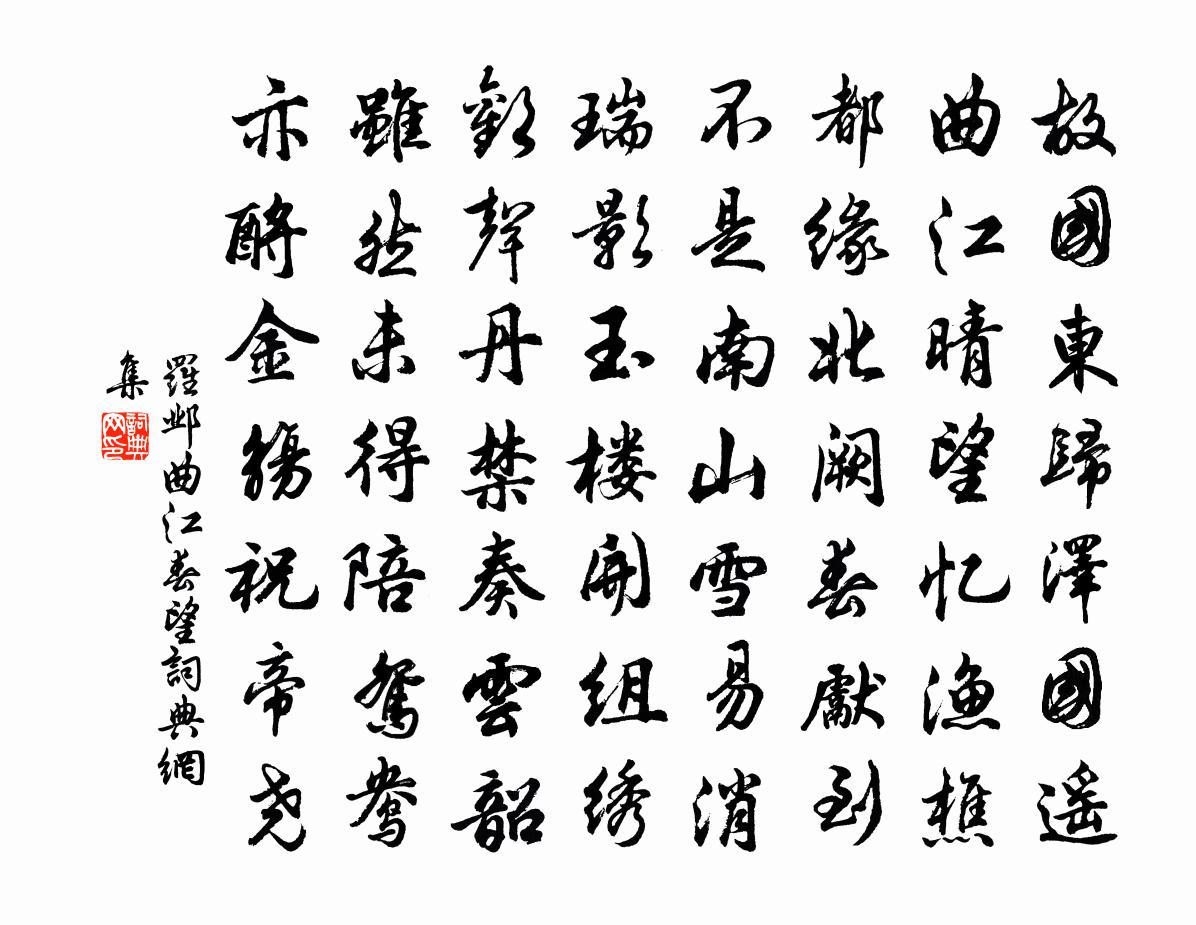 故國東歸澤國遥
曲江晴望忆漁樵
都緣北阙春獻到
不是南山雪易消
瑞影玉楼開组绣
歡聲丹禁奏雲韶
雖然未得陪鴛鴦
亦酹金觴祝帝尧
羅邺曲江春望詞典網
集
詞典
网印